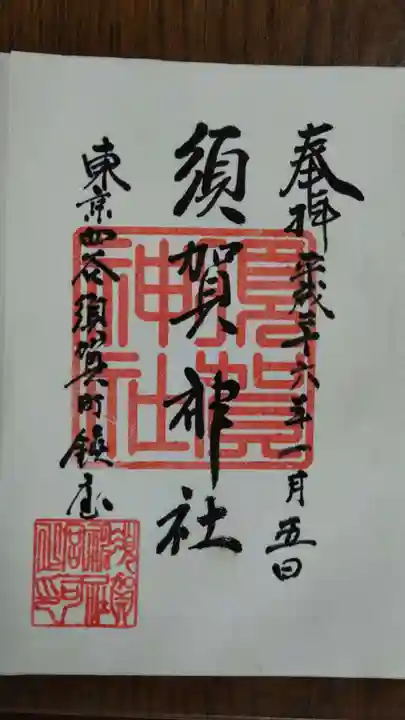 奉拝 平成二十六年一月五日
須賀神社
東京四谷須賀町鎮座
須賀神社
須賀神社宮司之印